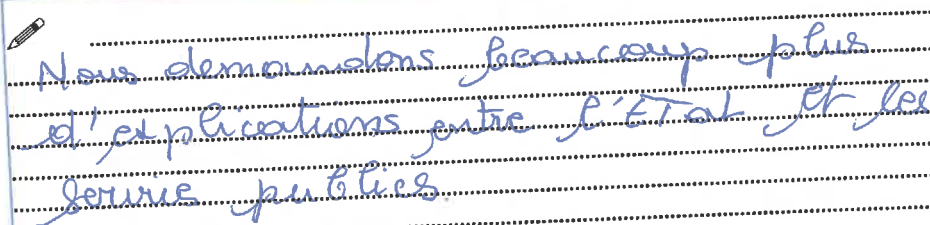 Nous demandons beaucoup plus
d'explications entre l'ETat et les
servie publics.